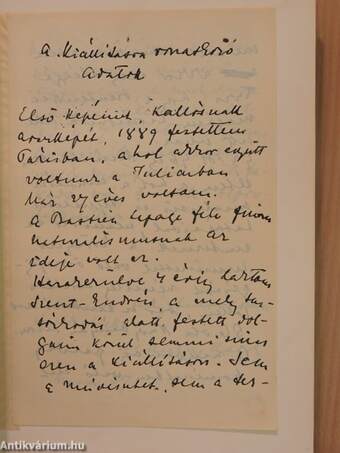 A Kiállításra vonatkozó
adatok
Első képemet, Kallósnak
arcképét, 1889 festettem
Párisban, ahol akkor együtt
voltunk a Julianban
Már 27 éves voltam.
A Bastien Lepage féle finom
naturalismusnak az
ideje volt ez.
Hazakerülve 4 évig laktam
Szent-Endrén, a mely tar-
tózkodás alatt festett dol-
gaim közül semmi sincs
ezen a kiállításon. Sem
a művészetet, sem a ter-
Antikvárium.hu